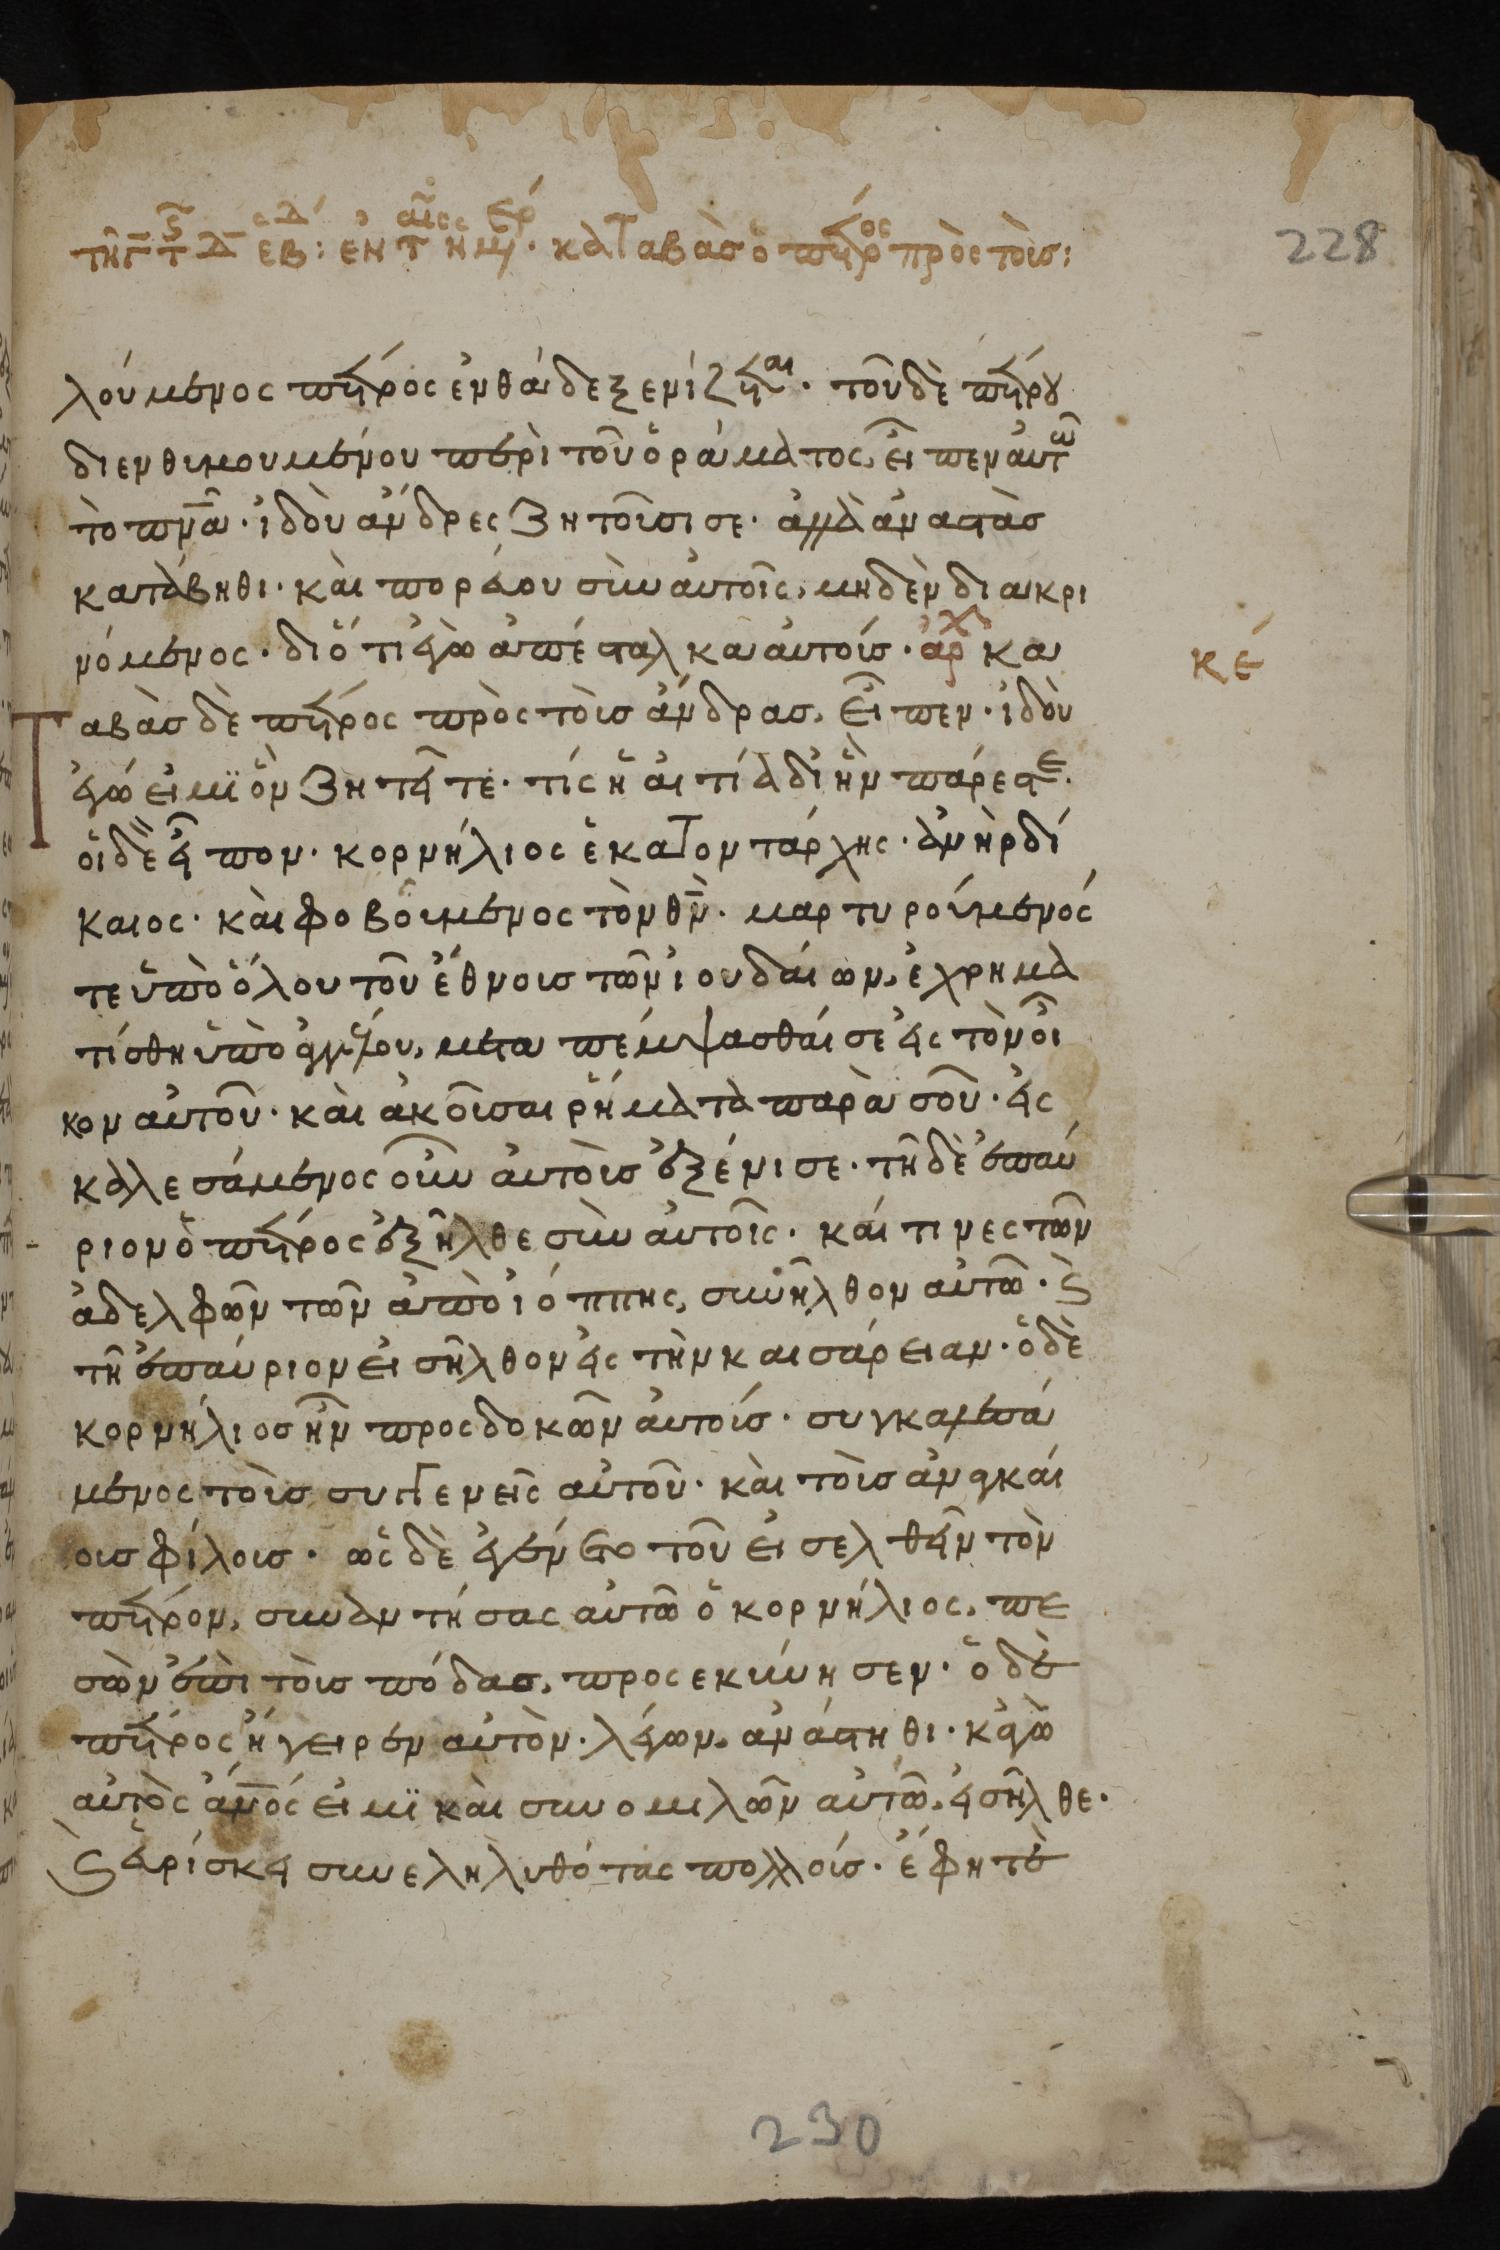 τῆς Δ ἑβ: ἐν τ ημ· καταβὰς ὁ πέτρος πρὸς τοὺς:
228
λούμενος πέτρος ἐνθάδε ξενίζεται· τοῦ δὲ πέτρου
διενθυμουμένου περὶ τοῦ ὁράματος, εἶπεν αὐτῶ
τὸ πνα· ἰδοὺ ἄνδρες ζητοῦσι σε· ἀλλὰ ἀναστὰς
κατάβηθι· καὶ πορεύου σὺν αὐτοῖς, μηδὲν διακρι
νόμενος· διότι ἐγὼ ἀπέσταλκα αὐτούς· ἀρχ κα
κε
Ταβὰς δὲ πέτρος πρὸς τοὺς ἄνδρας, εἶπεν· ἰδοὺ
ἐγώ εἰμϊ ὃν ζητεῖτε· τίς ἡ αἰτία δι ἣν πάρεστε·
οἱ δὲ εἶπον· κορνήλιος ἑκατοντάρχης· ἀνὴρ δί
καιος· καὶ φοβούμενος τὸν θν· μαρτυρούμενός
τε ὑπὸ ὅλου τοῦ ἔθνους τῶν ἰουδαίων, ἐχρημα
τίσθη ὑπὸ ἀγγέλου, μεταπέμψασθαί σε εἰς τὸν οἶ
κον αὐτοῦ· καὶ ἀκοῦσαι ῥήματα παρὰ σοῦ· εἰς
καλεσάμενος οὖν αὐτοὺς ἐξένισε· τῆ δὲ ἐπαύ
ριον ὁ πέτρος ἐξῆλθε σὺν αὐτοῖς· καί τινες τῶν
ἀδελφῶν τῶν ἀπὸ ἰόππης, συνῆλθον αὐτῶ· ϛ
τῆ ἐπαύριον εἰσῆλθον εἰς τὴν καισάρειαν· ὁ δὲ
κορνήλιος ἦν προσδοκῶν αὐτούς· συγκαλεσά
μενος τοὺς συγγενεῖς αὐτοῦ· καὶ τοὺς ἀναγκαί
ους φίλους· ὡς δὲ ἐγένετο τοῦ εἰσελθεῖν τὸν
πέτρον, συναντήσας αὐτῶ ὁ κορνήλιος, πε
σὼν ἐπὶ τοὺς πόδας, προσεκύνησεν· ὁ δὲ
πέτρος ἤγειρεν αὐτὸν· λέγων, ἀνάστηθι· κἀγὼ
αὐτὸς ἀνός εἰμϊ καὶ συνομιλῶν αὐτῶ, εἰσῆλθε·
ϛ εὑρίσκει συνεληλυθότας πολλούς· ἔφη τὲ
230